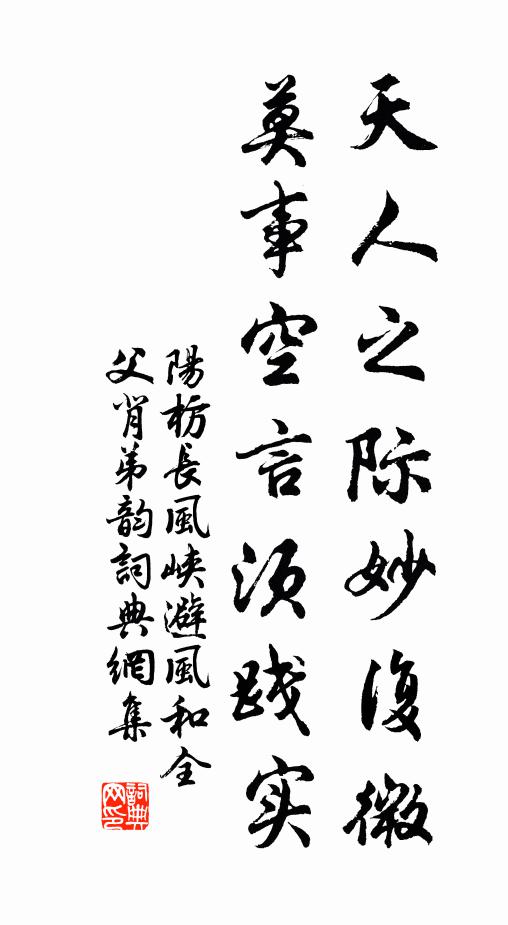 天人之际妙復微
莫事空言须践实
陽枋長風峡避風和全
父肖弟韵詞典網集
詞典网印